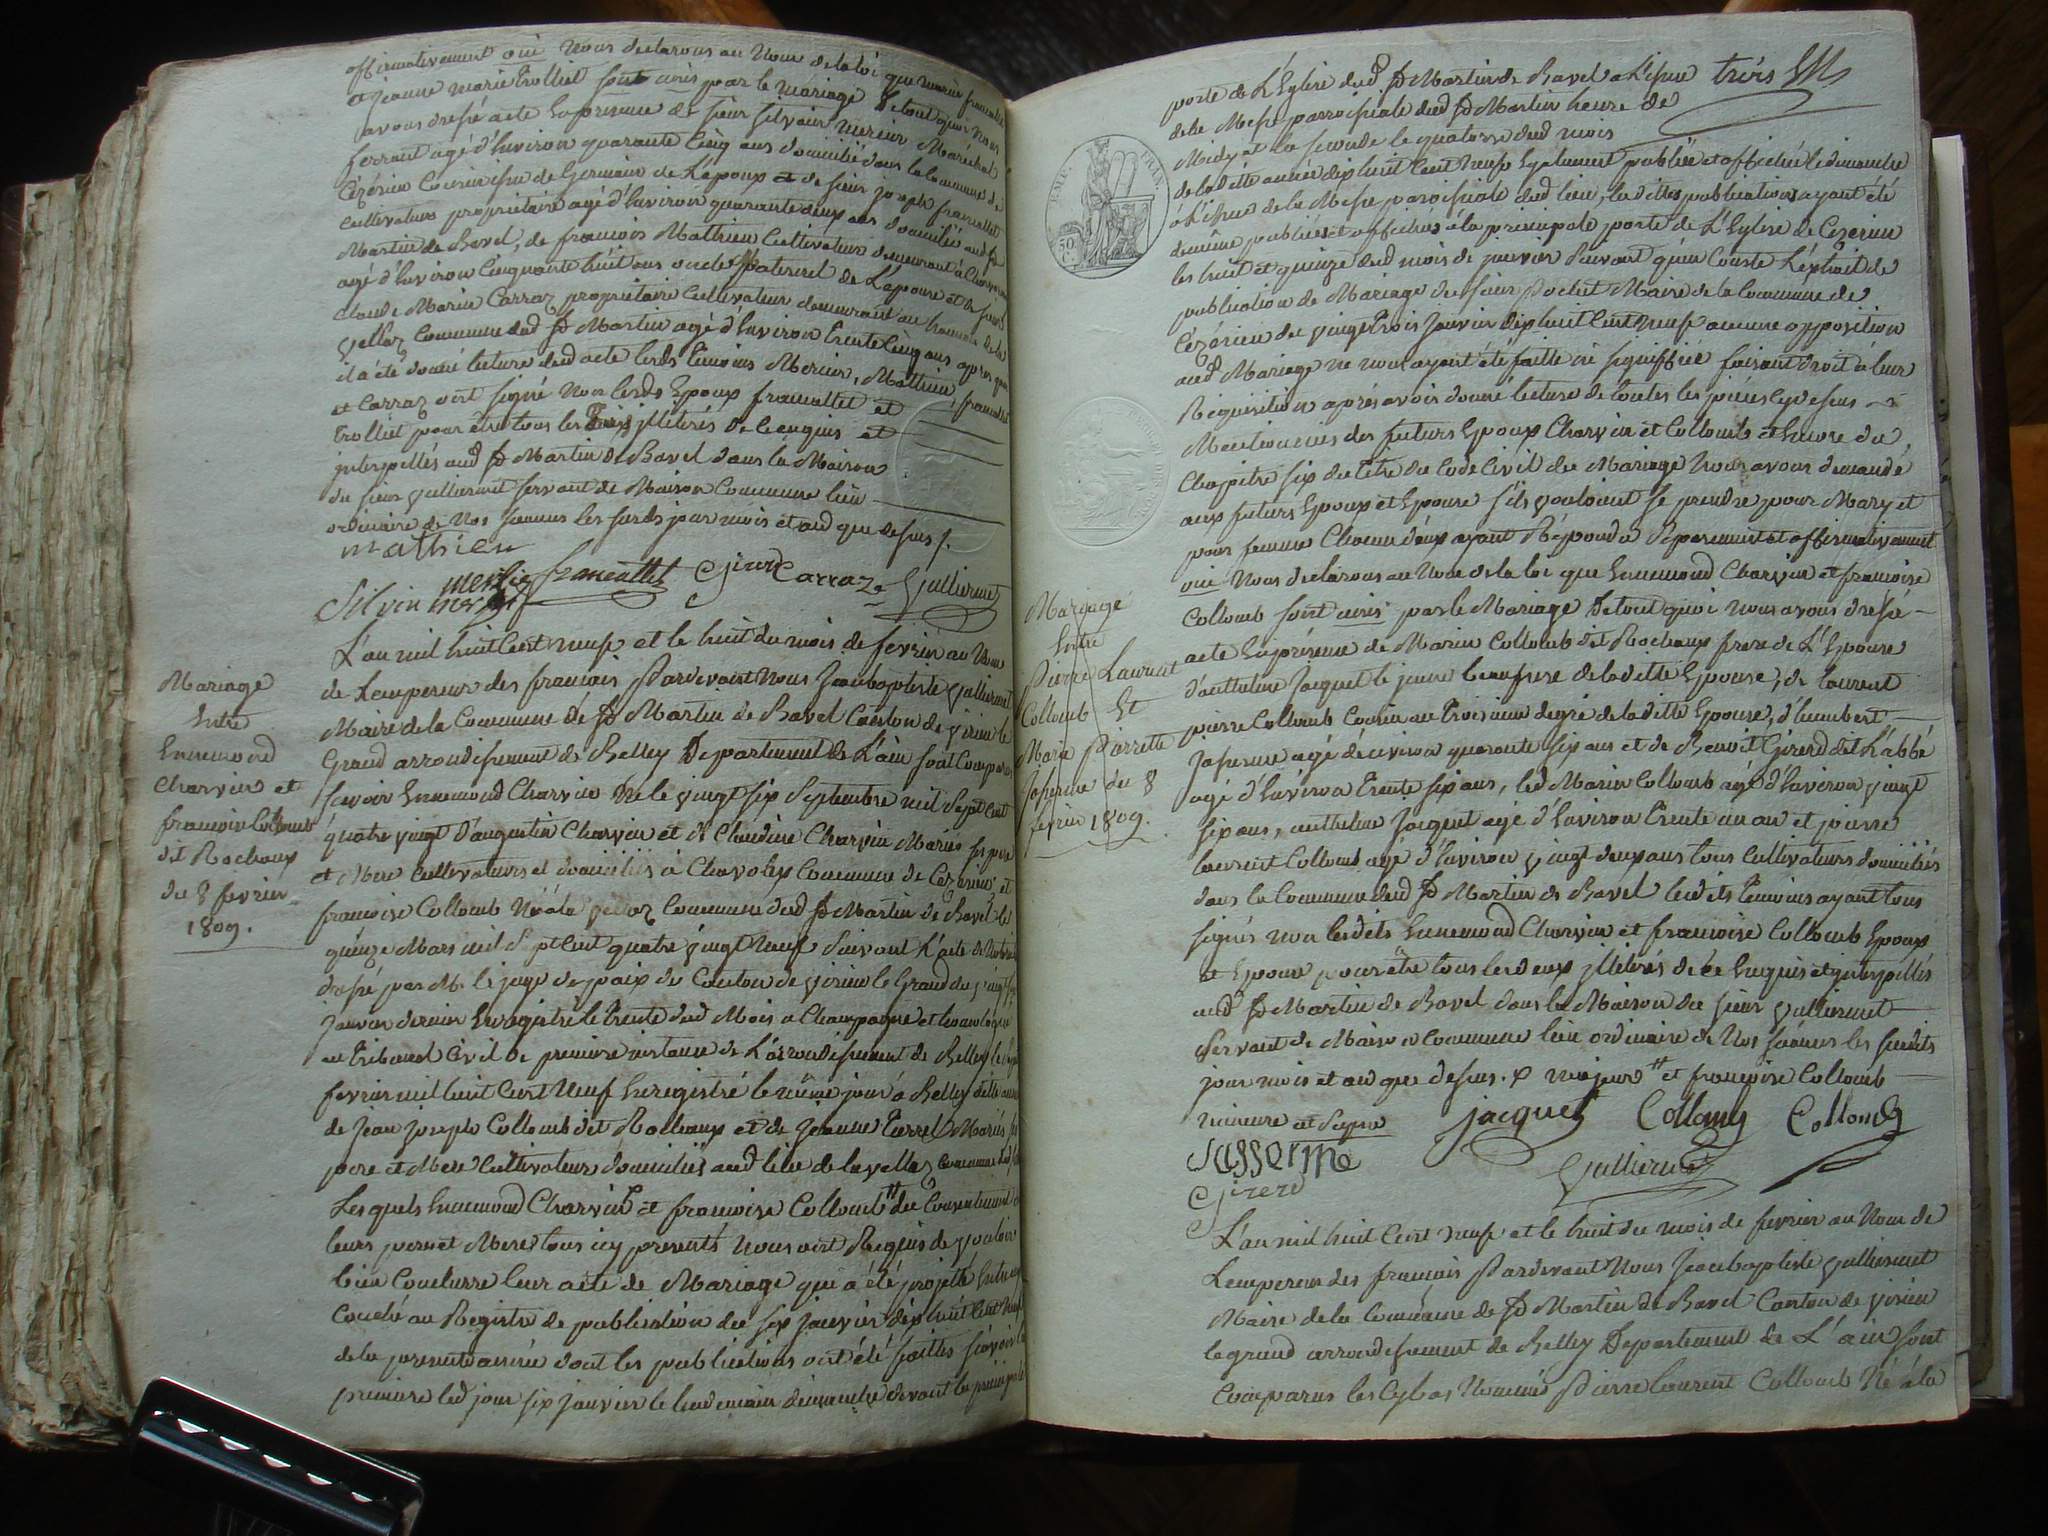 affirmativement oui Nous declarons au Nom de la loi que marin francallet
et jeanne marie Trolliet sont unis par le mariage De tout quoi nous
avons dressé acte En presence de sieur Silvain Mercier Maréchal
ferrant agé d'Environ quarante cinq ans domicilié dans la commune de
Cézérieu Cousin issu de Germain de L'époux et de sieur joseph francallet
cultivateur propriétaire agé d'Environ quarante deux ans domicilié aud St
Martin de Bavel, de francois Mathieu Cultivateur demeurant à
agé d'Environ Cinquante huit ans oncle Paternel de L'épouse et de sieur
claude Marie Carraz propriétaire Cultivateur demeurant au hameau de la
vellaz Commune dud St Martin agé d'Environ Trente Cinq ans apres quoi
il a été donné lecture dud acte lesds Temoins Mercier, Mathieu, francallet
et Carraz ont signé Non lesds Epoux francallet et
Trolliet pour être tous les illitérés de ce enquis et
interpellés aud St Martin de Bavel dans la Maison
du sieur Gullierme servant de Maison Commune lieu
ordinaire de Nos séances les susds jour mois et and que dessus /.
mathieu
Silvin mercie francallet C Carraz Gullierme
L'an mil huit Cent Neuf et le huit du mois de fevrié au Nom
de Lempereur des francois Pardevant Nous Jeanbaptiste Gullierme
Maire de la Commune de St Martin de Bavel Canton de virieu le
Grand arrondissement de Belley Departement de L'ain sont Comparus
scavoir Ennemond Charvin Né le vingt six Septembre mil Sept Cent
quatre vingt D'augustin Charvin et de Claudine Charvin Mariés ses pere
et Mere Cultivateurs et domiciliés à Chavoley Commune de Cézérieu, et
francoise Collomb Née à la vellaz Commune dud St Martin de Bavel le
quinze Mars mil Sept Cent quatre vingt Neuf Suivant L'acte de Notoriété
dressé par Mr le juge de paix du Canton de virieu le Grand du vingt
janvier dernier Enregistré le Trente dud Mois a Champagne et homologué
au Tribunal Civil de premiere instance de L'arrondissement de Belley le
fevrier mil huit Cent Neuf Enregistré le même jour à Belley
de Jean Joseph Collomb dit Rochaux et de Jeanne Mariés ses
pere et Mere Cultivateurs domiciliés aud lieu de la vellaz commune dud
Lesquels Ennemond Charvin et francoise Collomb du Consentement de
leurs peres et Meres tous icy presents Nous ont Requis de vouloir
bien Conclurre leur acte de Mariage qui a été projetté
Couché au Registre de publication du six janvier dix huit Cent Neuf
de la presente année dont les publications ont été faittes scavoir la
premiere led jour six janvier le Lendemain dimanche devant la principale
Mariage
Entre
Ennemond
Charvin et
francoise Collomb
dit Rochaux
du 8 fevrier
1809.
porte de L'Eglise dud St Martin de Bavel a L'issue trois
de la Messe parroissiale dud St Martin heure de
Midy et la seconde le quatorze dud mois
de laditte année dix huit Cent Neuf Egalement publiée et affichée le dimanche
a L'issue de la Messe paroissiale dud lieu, lesdittes publications ayant été
demême publiées et affichées à la principale porte de L'Eglise de Cezerieu
les huit et quinze dud mois de janvier Suivant qu'en Conste L'extrait de
publication de Mariage du sieur Pochet Maire de la Commune de
Cézérieu du vingt Trois Janvier dix huit Cent Neuf aucune opposition
aud Mariage ne nous ayant été faitte ni signiffiée faisant droit à leur
Réquisition aprés avoir donné lecture de toutes les piéces cydessus
Mentionnées des futurs Epoux Charvin et Collomb et Encore du
Chapitre six du titre du Code Civil du Mariage Nous avons demandé
aux futurs Epoux et Epouse s'ils vouloient se prendre pour Mary et
pour femme Chacun d'eux ayant Répondu Séparement et affirmativement
oui Nous declarons au Nom de la loi que Ennemond Charvin et francoise
Collomb sont unis par le Mariage De tout quoi nous avons dressé
acte En présence de Marin Collomb dit Rochaux frere de L'Epouse
d'anthelme Jacquet le jeune beaufrere de laditte Epouse, de Laurent
pierre Collomb Cousin au Troisieme degré de laditte Epouse, d'humbert
Jasserme agé d'environ quarante six ans et de Benoit Girerd dit L'abbé
agé d'Environ Trente six ans, led Marin Collomb agé d'Environ vingt
six ans, anthelme Jacquet agé d'Environ Trente un an et pierre
laurent Collomb agé d'Environ vingt deux ans tous Cultivateurs domiciliés
dans la Commune dud St Martin de Bavel lesdits Temoins ayant tous
signés non lesdits Ennemond Charvin et francoise Collomb Epoux
et Epouse pour être tous les deux illitérés de ce Enquis et interpellés
aud St Martin de Bavel dans la Maison du sieur Gullierme
Servant de Maison Commune lieu ordinaire de Nos séances les susdits
jour mois et and que dessus. majeur et francoise Collomb
mineure
jacquet Collomb Collomb
Jasserme Gullierme
Girerd
L'an mil huit Cent Neuf et le huit du mois de fevrier au Nom de
Lempereur des francois Pardevant Nous Jeanbaptiste Gullierme
Maire de la Commune de St Martin de Bavel Canton de virieu
le grand arrondissement de Belley Departement de L'ain sont
Comparus les Cybas Nommés Pierre laurent Collomb Né à la
Mariage
Entre
Pierre Laurent
Collomb Et
Marie Pierrette
Jasserme du 8
fevrier 1809.
EMP. FRAN.
50